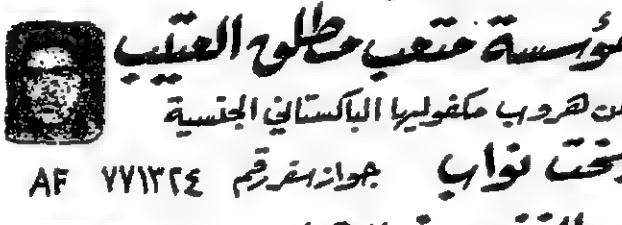 مؤسسة متعب مطلق العتيبي
عن هروب مكفوليها الباكستاني الجنسية
بخت نواب جواز سفر رقم ٧٧١٣٢٤ AF